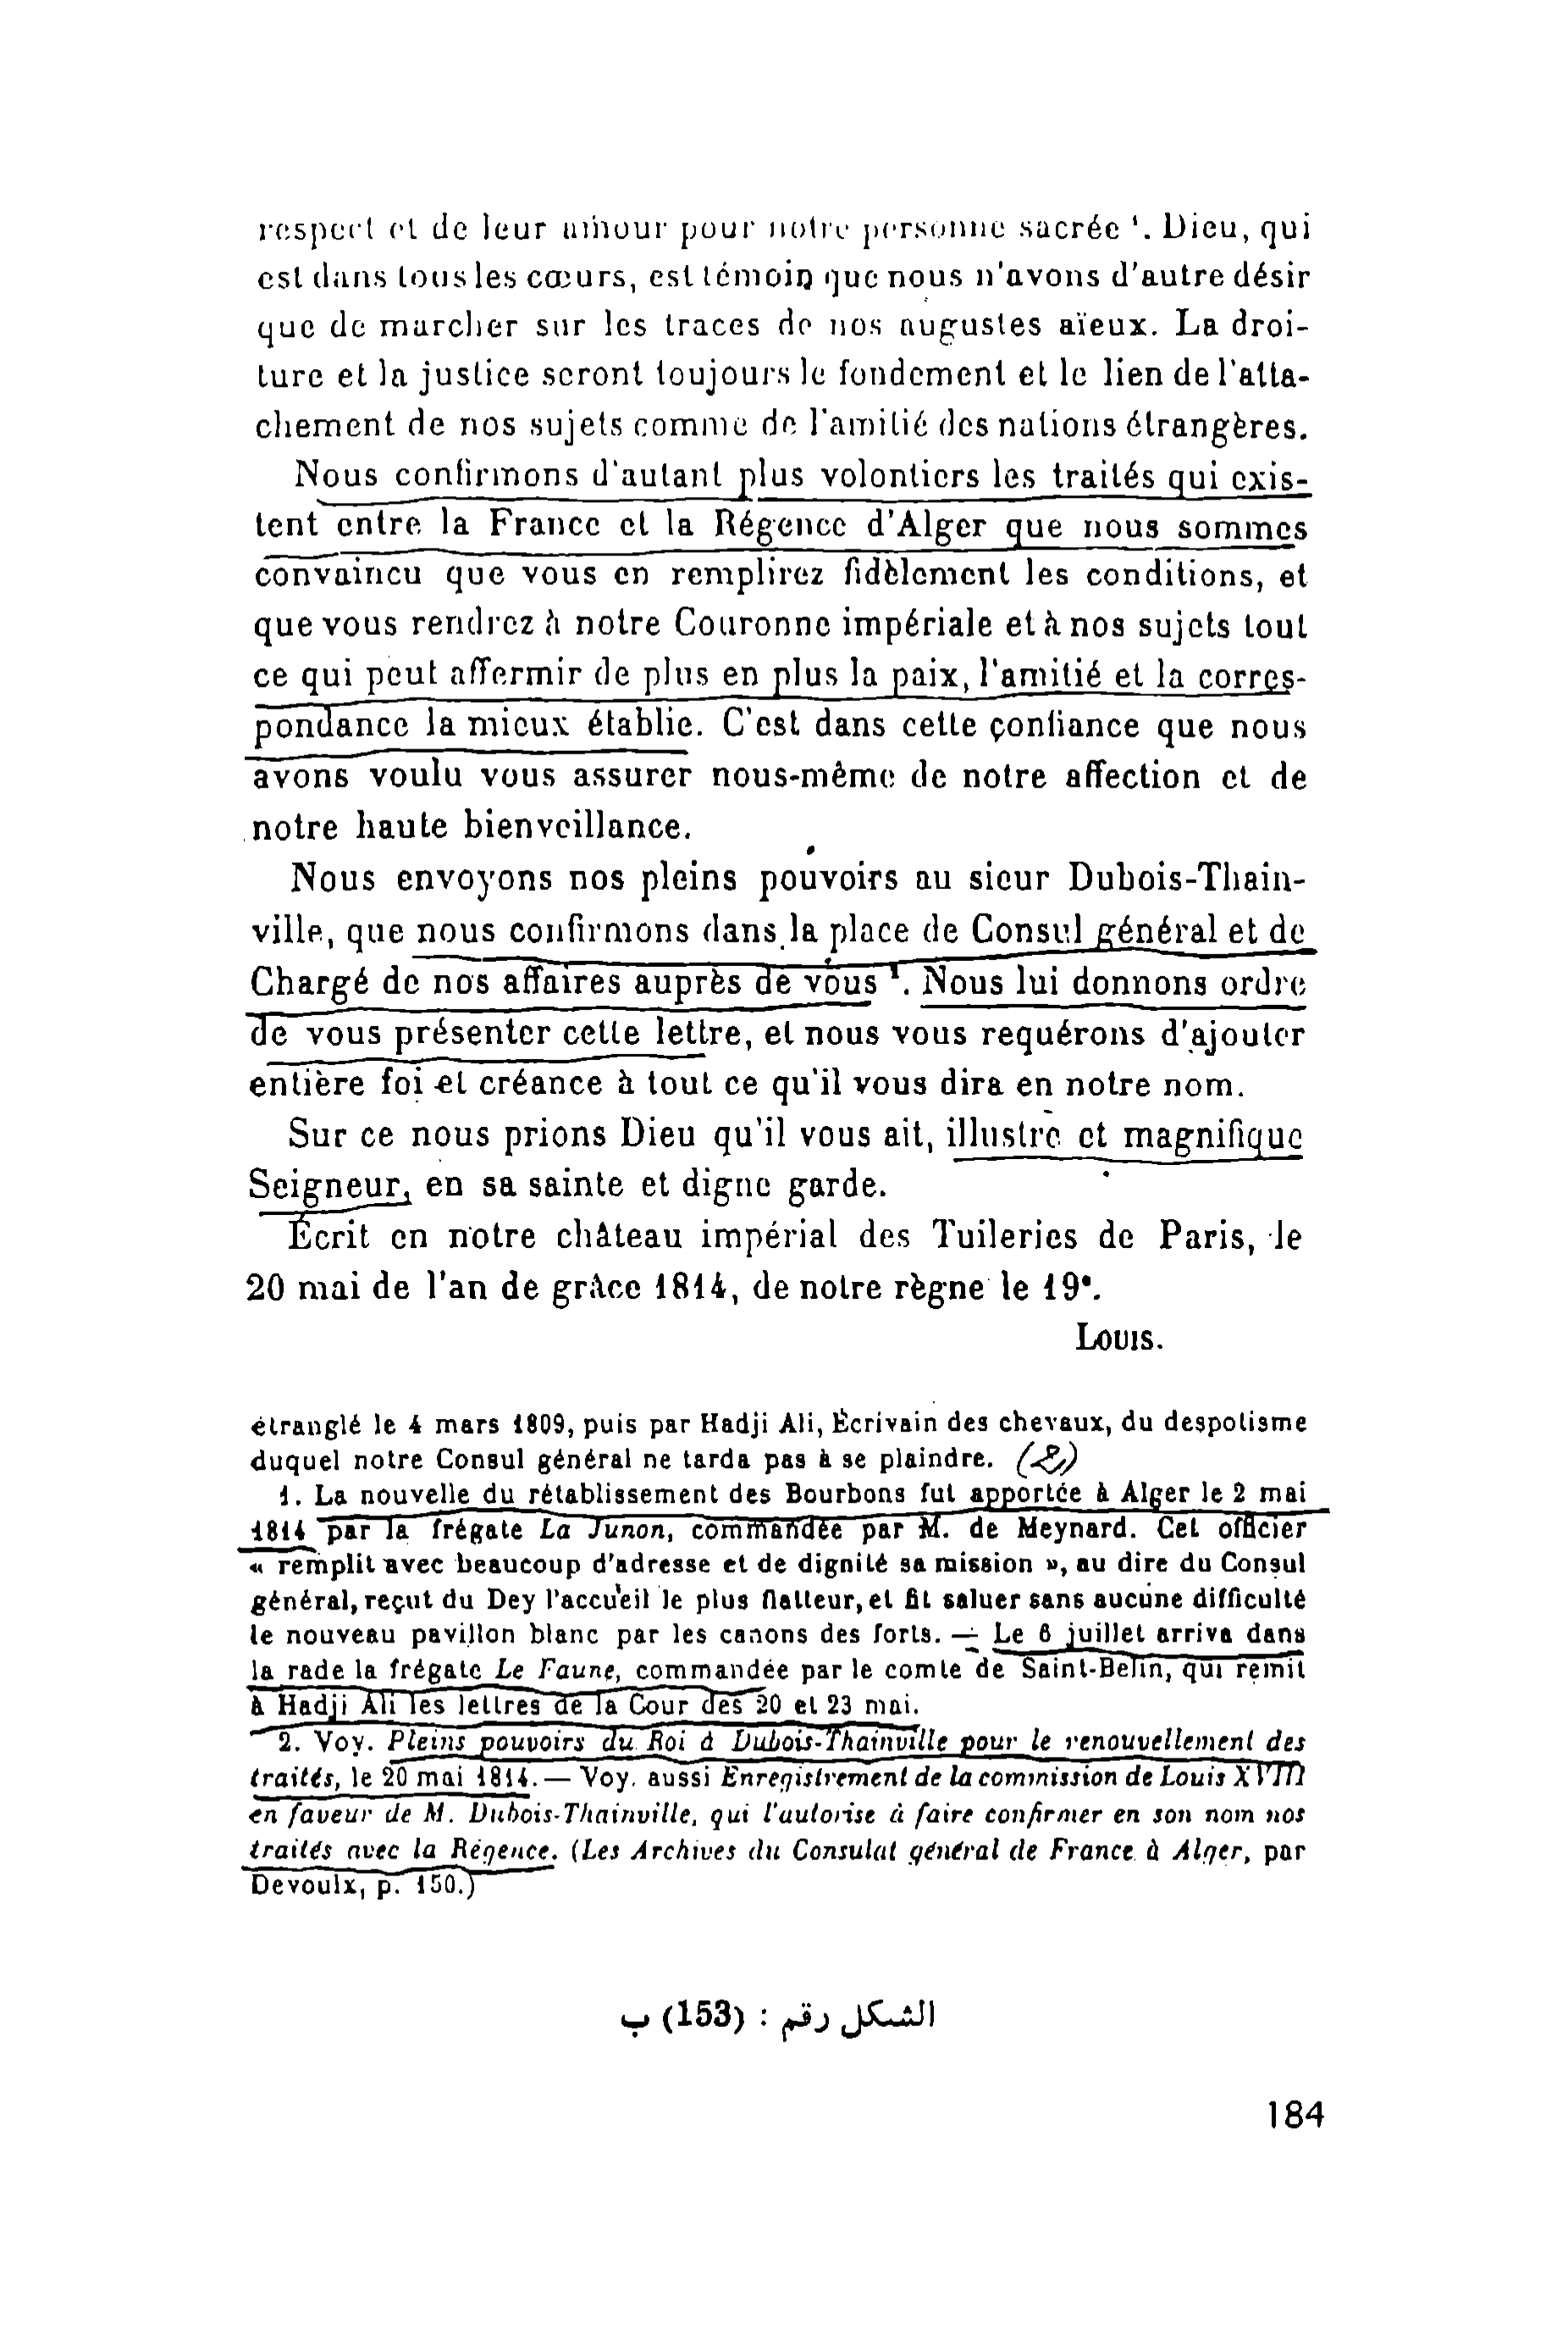 respect et de leur amour pour notre personne sacrée ¹. Dieu, qui
est dans tous les cœurs, est témoin que nous n'avons d'autre désir
que de marcher sur les traces de nos augustes aïeux. La droi-
ture et la justice seront toujours le fondement et le lien de l'atta-
chement de nos sujets comme de l'amitié des nations étrangères.
Nous confirmons d'autant plus volontiers les traités qui exis-
tent entre la France et la Régence d'Alger que nous sommes
convaincu que vous en remplirez fidèlement les conditions, et
que vous rendrez à notre Couronne impériale et à nos sujets tout
ce qui peut affermir de plus en plus la paix, l'amitié et la corres-
pondance la mieux établie. C'est dans cette confiance que nous
avons voulu vous assurer nous-même de notre affection et de
notre haute bienveillance.
Nous envoyons nos pleins pouvoirs au sieur Dubois-Thain-
ville, que nous confirmons dans la place de Consul général et de
Chargé de nos affaires auprès de vous ¹. Nous lui donnons ordre
de vous présenter cette lettre, et nous vous requérons d'ajouter
entière foi et créance à tout ce qu'il vous dira en notre nom.
Sur ce nous prions Dieu qu'il vous ait, illustre et magnifique
Seigneur, en sa sainte et digne garde.
Écrit en notre château impérial des Tuileries de Paris, le
20 mai de l'an de grâce 1814, de notre règne le 19ᵉ.
Louis.
étranglé le 4 mars 1809, puis par Hadji Ali, Écrivain des chevaux, du despotisme
duquel notre Consul général ne tarda pas à se plaindre.
1. La nouvelle du rétablissement des Bourbons fut apportée à Alger le 2 mai
1814 par la frégate La Junon, commandée par M. de Meynard. Cet officier
« remplit avec beaucoup d'adresse et de dignité sa mission », au dire du Consul
général, reçut du Dey l'accueil le plus flatteur, et fit saluer sans aucune difficulté
le nouveau pavillon blanc par les canons des forts. — Le 6 juillet arriva dans
la rade la frégate Le Faune, commandée par le comte de Saint-Belin, qui remit
à Hadji Ali les lettres de la Cour des 20 et 23 mai.
2. Voy. Pleins pouvoirs du Roi à Dubois-Thainville pour le renouvellement des
traités, le 20 mai 1814. — Voy. aussi Enregistrement de la commission de Louis XVIII
en faveur de M. Dubois-Thainville, qui l'autorise à faire confirmer en son nom nos
traités avec la Régence. (Les Archives du Consulat général de France à Alger, par
Devoulx, p. 150.)
الشكل رقم : (153) ب
184